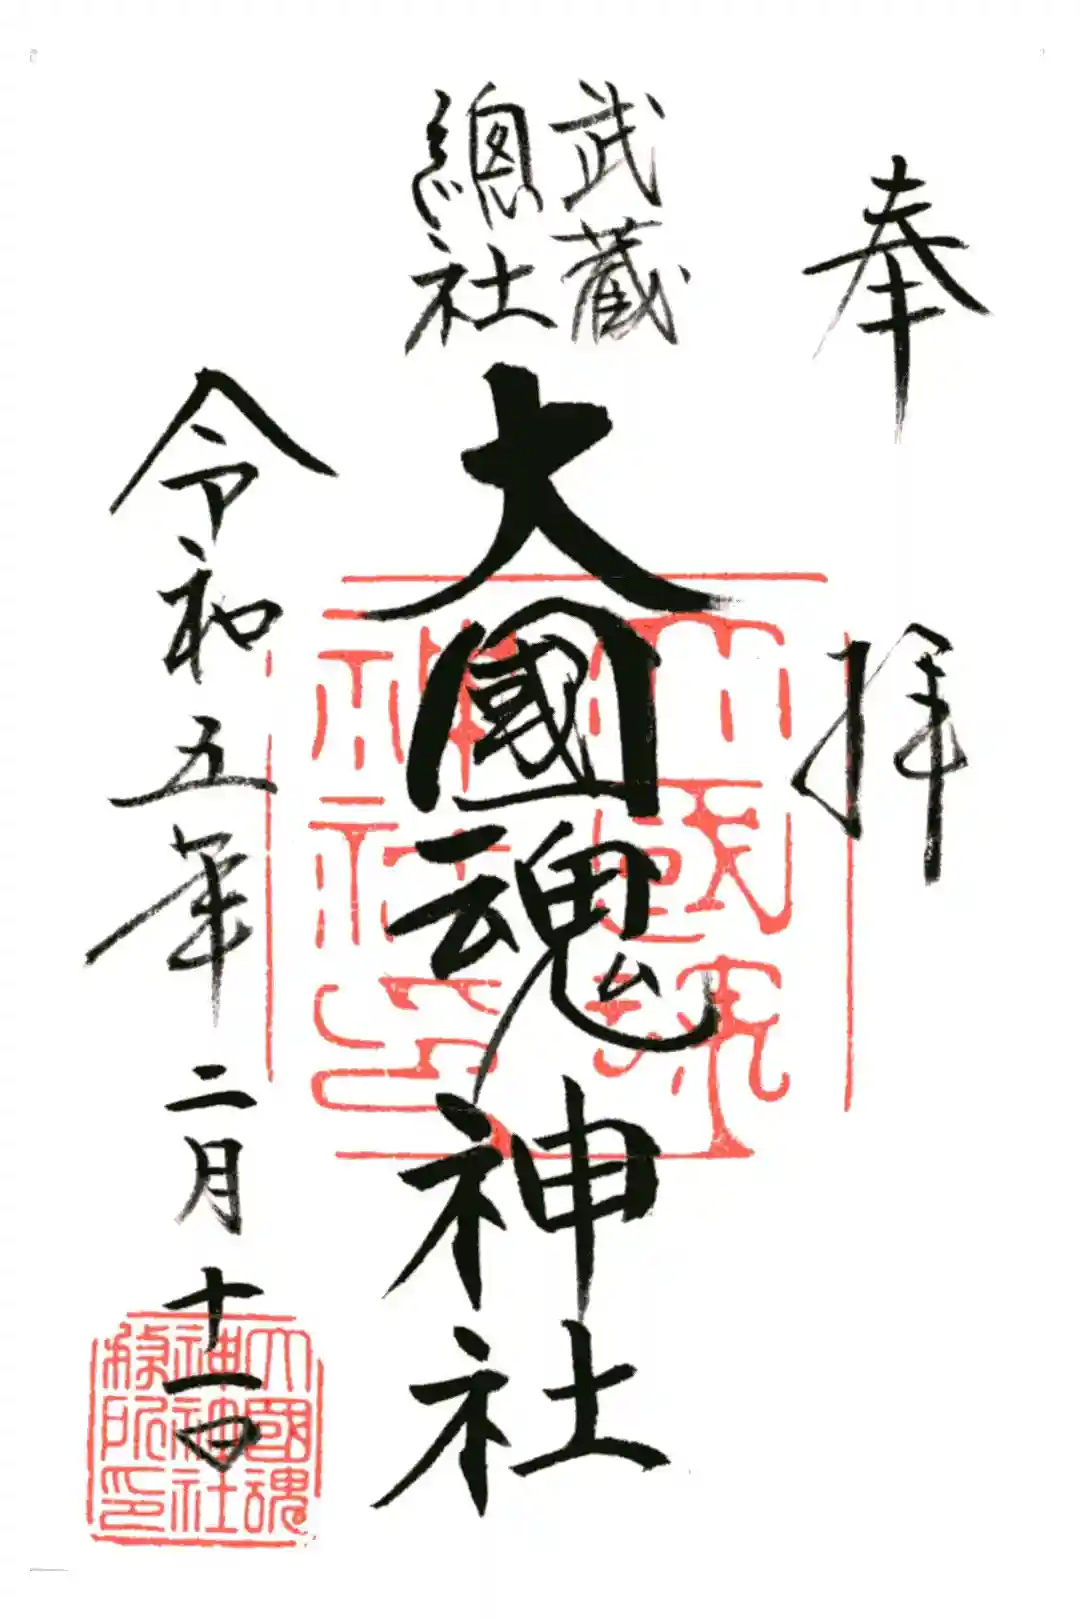 奉拝
武蔵
總社
大國魂神社
令和五年二月十一日
大國魂
神社
印
大國魂
神神社
印